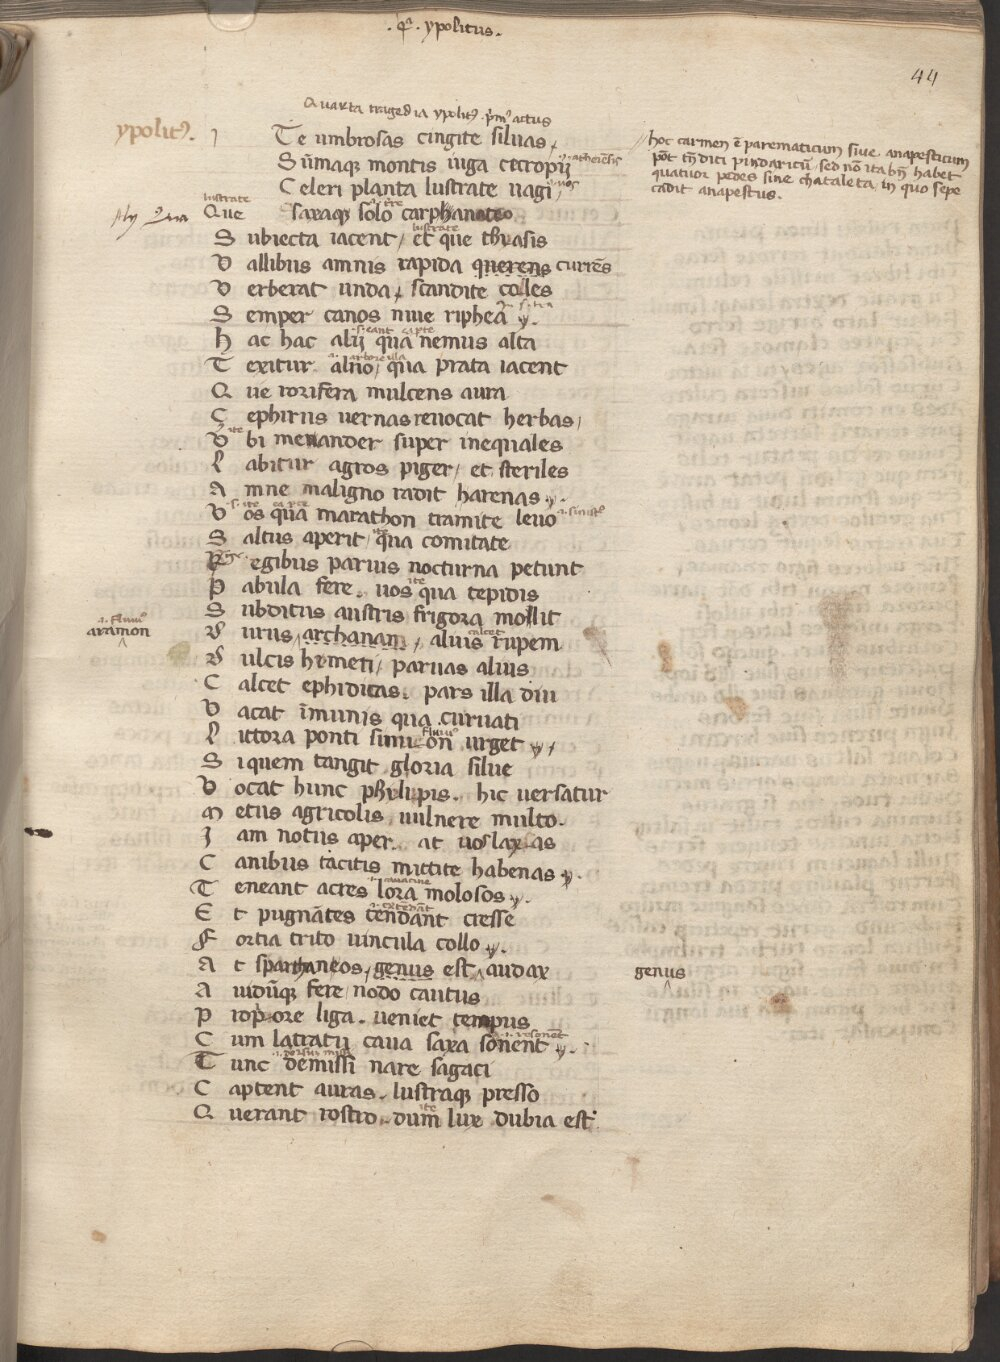 .qª. ypolitus.
44
Quarta tragedia ypolitꝰ. pͥmꝰ actus
ypolitꝰ.
Te umbrosas cingite siluas,
Sūmaqꝫ montis iuga cecropij
.i. atheiēsis
Celeri planta lustrate uagi
hoc carmen ē parematicum siue anapesticum
pōt cū dici pindaricū, sed nō ita bñ habet
quatuor pedes sine chataleta, in quo sepe
cadit anapestus.
lustrate
Que saxaqꝫ solo carphanateo
lustrate
Subiecta iacent, et que thrasis
Vallibus amnis rapida querens currēs
Verberat unda, scandite colles
Semper canos niue riphea
Hac hac alij qua nemus alta
Texitur alno, qua prata iacent
Que rorifera mulcens aura
Cephirus uernas reuocat herbas,
Vbi menander super inequales
Labitur agros piger, et steriles
Amne maligno radit harenas
Vos qua marathon tramite leuo
Saltus aperit, qua comitate
Regibus paruis nocturna petunt
Pabula fere. uos qua tepidis
ite
Subditus austris frigora mollit
.i. fluuiꝰ
aramon
Durus archanam, aluis rupem
calcet
Dulcis hymeti, paruas alius
Calcet ephiditas. pars illa diu
Vacat īmunis qua curuati
fluuiꝰ
Littora ponti simicon urget
Siquem tangit gloria silue
Vocat hunc phylipis. hic uersatur
Metus agricolis, uulnere multo.
Iam notus aper. at uos laxas
Canibus tacitis mittite habenas
Teneant acres lora molosos
.i. extendāt
Et pugnātes tendant cresse
Fortia trito uincula collo
At sparthaneos, genus est audax
genus
Auidūqꝫ fere, nodo cautus
Propiore liga. ueniet tempus
.i. resonēt
Cum latratu caua saxa sonent
Tunc demissi nare sagaci
Captent auras. lustraqꝫ presso
Querant rostro. dum lux dubia est.